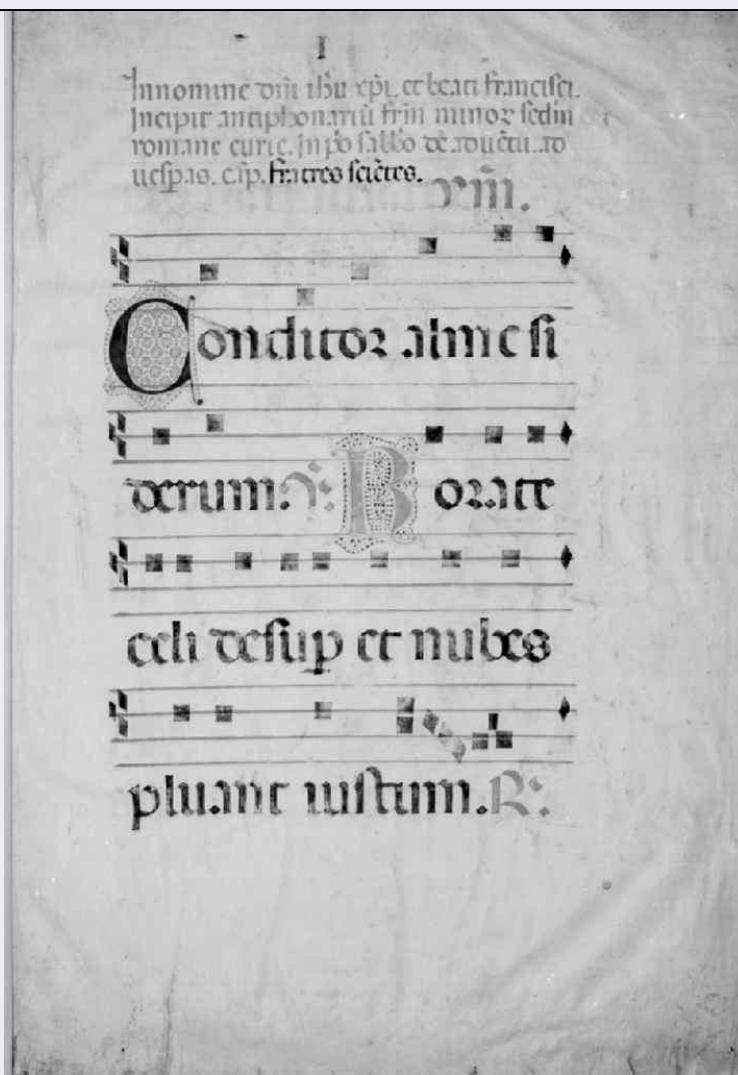 I
In nomine dñi ihu xp̄i. et beati francisci.
Incipit antiphonariū frm̄ minoꝝ scdm
romane curie. In p̃o sabb̃o de aduētu. ad
uesp̃as. cap̃. fratres sciētes. ym̃.
Conditor alme si
derum. ℣. Rorate
celi desup̱ et nubes
pluant iustum. ℟.